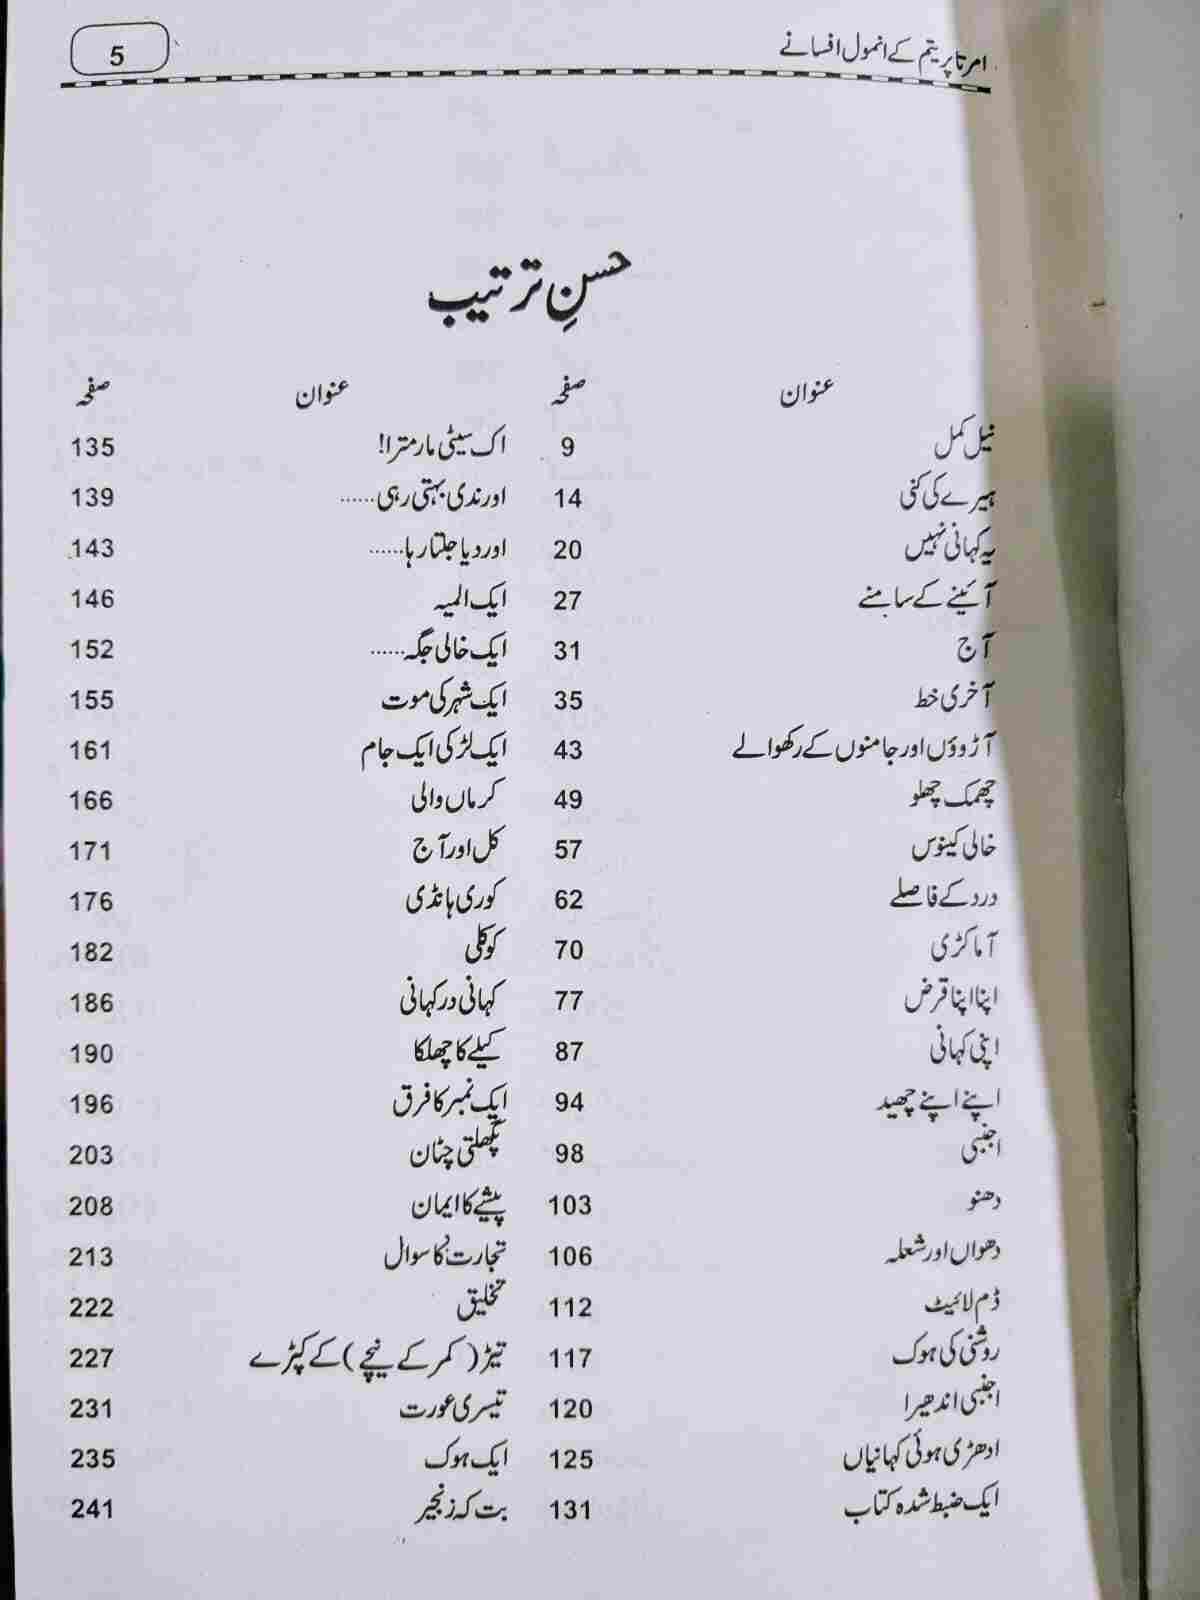 امرتا پریتم کے انمول افسانے 5
حسنِ ترتیب
عنوان صفحہ عنوان صفحہ
نیل کمل 9 اک سیٹی مار مترا! 135
ہیرے کی کنی 14 اور ندی بہتی رہی...... 139
یہ کہانی نہیں 20 اور دیا جلتا رہا...... 143
آئینے کے سامنے 27 ایک المیہ 146
آج 31 ایک خالی جگہ...... 152
آخری خط 35 ایک شہر کی موت 155
آڑوؤں اور جامنوں کے رکھوالے 43 ایک لڑکی ایک جام 161
چھمک چھلو 49 کرماں والی 166
خالی کینوس 57 کل اور آج 171
درد کے فاصلے 62 کوری ہانڈی 176
آماکڑی 70 کوکلی 182
اپنا اپنا قرض 77 کہانی در کہانی 186
اپنی کہانی 87 کیلے کا چھلکا 190
اپنے اپنے چھید 94 ایک نمبر کا فرق 196
اجنبی 98 پگھلتی چٹان 203
دھنو 103 پیشے کا ایمان 208
دھواں اور شعلہ 106 تجارت کا سوال 213
ڈم لائیٹ 112 تخلیق 222
روشنی کی ہوک 117 تیڑ (کمر کے نیچے) کے کپڑے 227
اجنبی اندھیرا 120 تیسری عورت 231
ادھڑی ہوئی کہانیاں 125 ایک ہوک 235
ایک ضبط شدہ کتاب 131 بت کہ زنجیر 241